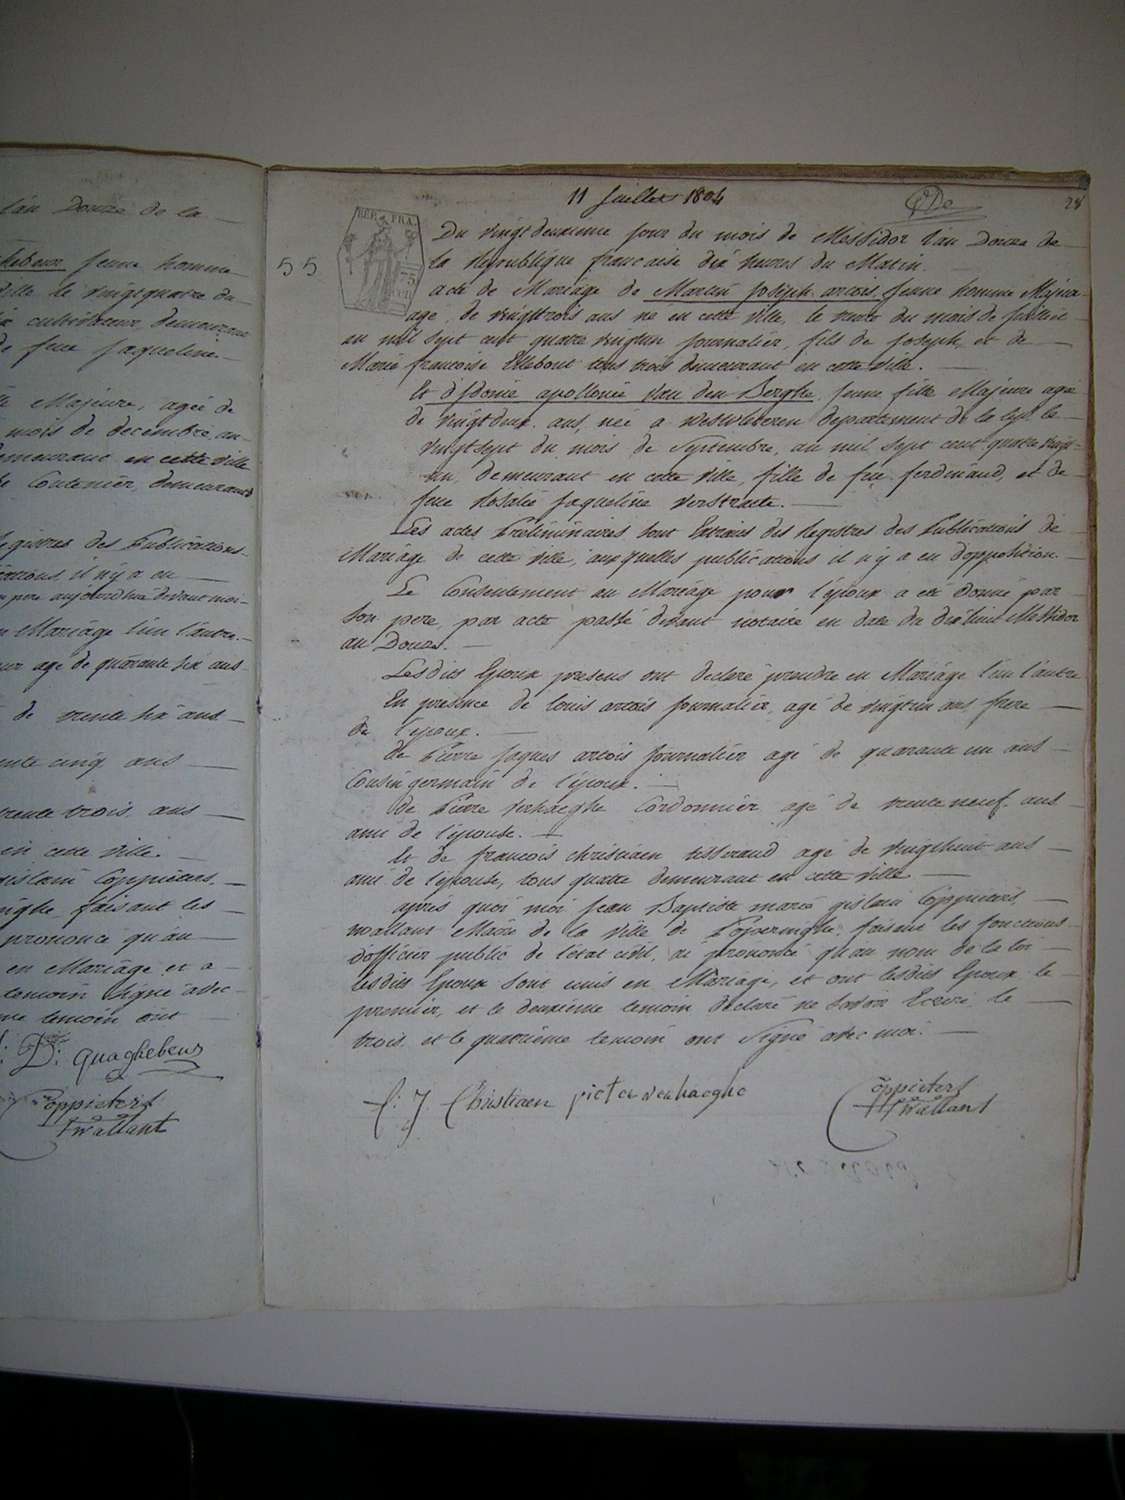 l'an Douze de la
hebeur jeune homme
ville le vingtquatre du
cultivateur, demeurant
de feue jaqueline
Majeure, agée de
mois de decembre, an
demeurant en cette ville
Coutenier, demeurant
registres des Publications
il n'y a eu
pere aujourdhui devant moi
Mariage l'un l'autre
agé de quarante six ans
de trente six ans
cinq ans
trente trois ans
en cette ville.
gislain Coppieters
faisant les
prononcé qu'au
en Mariage et a
temoin signé avec
temoin ont
D: Quaghebeur
Coppieters
twallant
11 Juillet 1804
28
55
REP. FRA.
75
Du vingtdeuxieme jour du mois de Messidor l'an Douze de
la Republique francaise dix heures du Matin.
acte de Mariage de Martin joseph artois jeune homme Majeur
agé de vingttrois ans né en cette ville, le trente du mois de juillet
an mil sept cent quatre vingtun journalier, fils de joseph, et de
Marie francoise Elebout tous trois demeurant en cette ville.
Et d'Idonie apollonie Van den Berghe, jeune fille Majeure agée
de vingtdeux ans, née a westvleteren departement de la Lys le
vingtsept du mois de Septembre, an mil sept cent quatre vingt
un, demeurant en cette ville, fille de feu ferdinand, et de
feue Rosalie jaqueline Verstraete.
Les actes Préliminaires sont Extraits des Registres des Publications de
Mariage de cette ville, auxquelles publications il n'y a eu d'opposition.
Le Consentement au Mariage pour l'époux a été donné par
son pere, par acte passé devant notaire en date du dixhuit Messidor
an Douze.
Lesdits Epoux presens ont declaré prendre en Mariage l'un l'autre
En presence de louis artois journalier, agé de vingtun ans, frere
de l'époux.
de Pierre jaques artois journalier agé de quarante un ans
Cousin germain de l'époux.
de Pierre Verhaeghe Cordonnier agé de trente neuf ans
ami de l'épouse.
Et de francois christiaen tisserand agé de vingthuit ans
ami de l'épouse, tous quatre demeurant en cette ville
après quoi moi jean Baptiste marie gislain Coppieters
twallant Maire de la ville de Poperinghe, faisant les fonctions
d'officier public de l'etat civil, ai prononcé qu'au nom de la loi
lesdits Epoux sont unis en Mariage, et ont lesdits Epoux le
premier, et le deuxieme temoin declaré ne savoir Ecrire, le
trois, et le quatrième temoin ont signé avec moi.
f: J. Christiaen pieter verhaeghe
Coppieters
twallant